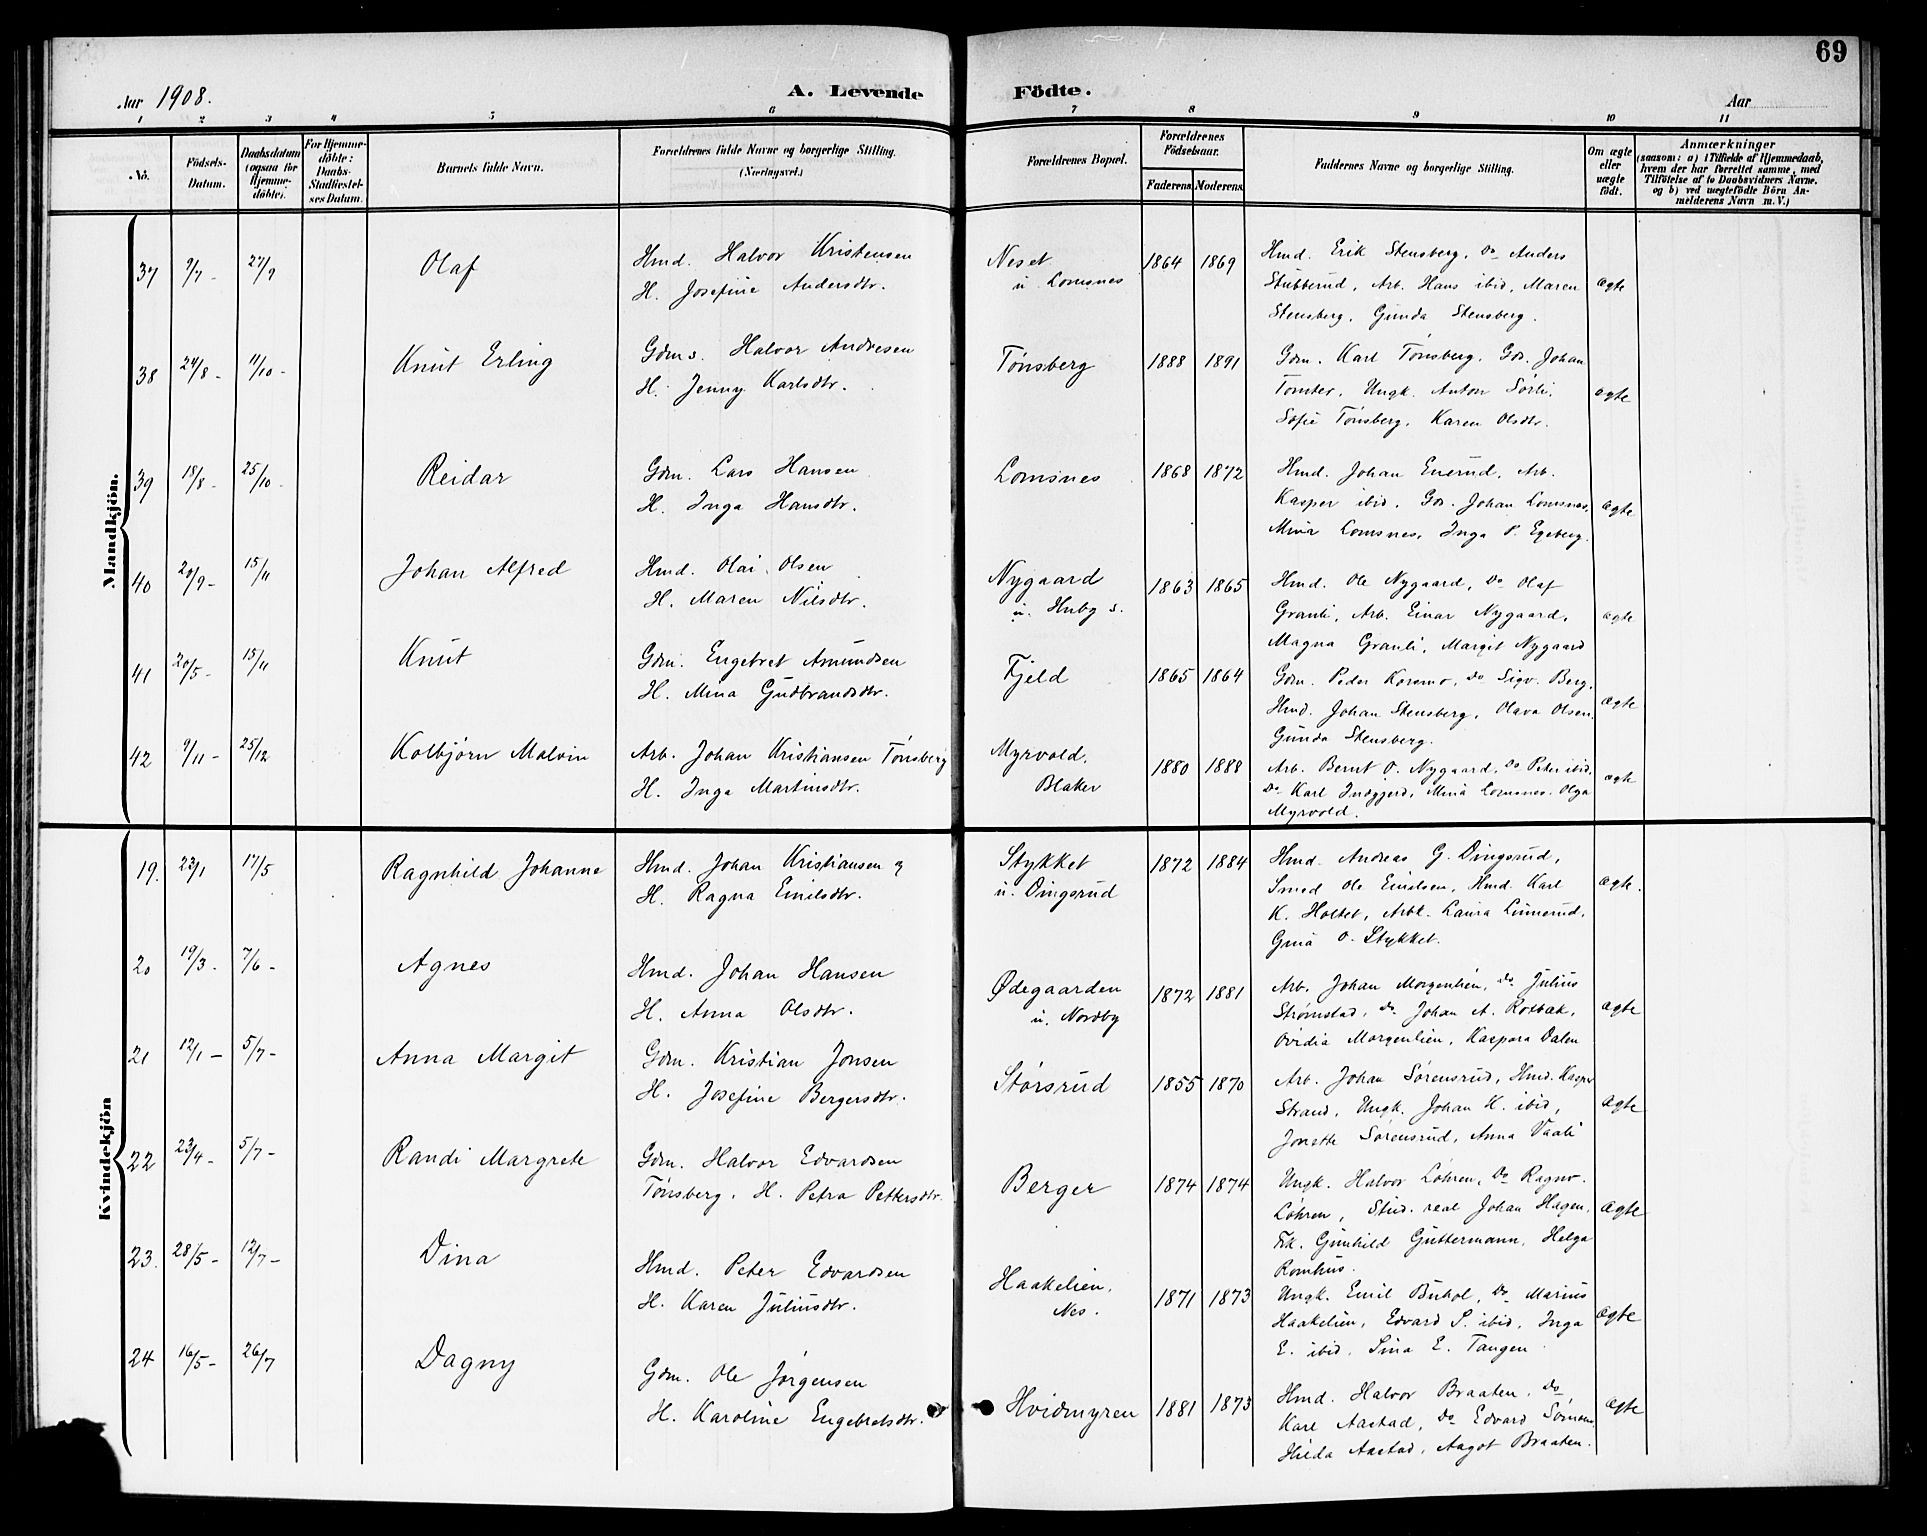 69
Aar 1908. A. Levende Födte. Aar
1 2 3 4 5 6 7 8 9 10 11
No. Födsels-Datum. Daabsdatum (ogsaa for Hjemmedöbte). For Hjemmedöbte: Daabs-Stadfæstelses Datum. Barnets fulde Navn. Forældrenes fulde Navne og borgerlige Stilling. (Næringsvei.) Forældrenes Bopæl. Forældrenes Födselsaar. Faderens. Moderens. Faddernes Navne og borgerlige Stilling. Om ægte eller uægte födt. Anmærkninger (saasom: a) i Tilfælde af Hjemmedaab, hvem der har forrettet samme, med Tilföielse af to Daabsvidners Navne, og b) ved uægtefödte Börn Anmelderens Navn m. V.)
Mandkjön.
37 9/7 - 27/9 Olaf Hmd. Halvor Kristensen Neset 1864 1869 Hmd. Erik Stensberg, Do Anders
H. Josefine Andersdtr. u. Lomsnes Stubberud, Arb. Hans ibid, Maren ægte
Stensberg, Gunda Stensberg.
38 24/8 - 11/10 - Knut Erling Gdms. Halvor Andresen Tönsberg 1888 1891 Gdm. Karl Tönsberg, Gds. Johan
H. Jenny Karlsdtr. Tomter, Ungk. Anton Sörli, ægte
Sofie Tönsberg, Karen Olsdtr.
39 18/8 - 25/10 - Reidar Gdm. Lars Hansen Lomsnes 1868 1872 Hmd. Johan Enerud, Arb.
H. Inga Hansdtr. Kasper ibid, Gds. Johan Lomsnes, ægte
Mina Lomsnes, Inga P. Egeberg.
40 20/9 - 15/11 Johan Alfred Hmd. Olai Olsen Nygaard 1863 1865 Hmd. Ole Nygaard, Do Olaf
H. Maren Nilsdtr. u. Huby s. Granli, Arb. Einar Nygaard, ægte
Magna Granli, Margit Nygaard
41 20/5 - 15/11 Knut Gdm. Engebret Amundsen Fjeld 1865 1864 Gdm. Peder Korsmo, Do Sigv. Berg,
H. Mina Gudbrandsdtr. Hmd. Johan Stensberg, Olava Olsen, ægte
Gunda Stensberg.
42 9/11 - 25/12 Kolbjörn Malvin Arb. Johan Kristiansen Tönsberg Myrvold, 1880 1888 Arb. Bernt O. Nygaard, Do Peter ibid,
H. Inga Martinsdtr. Blaker Do Karl Inæggerd, Mina Lomsnes, Olga ægte
Myrvold.
Kvindekjön
19. 23/1 17/5 Ragnhild Johanne Hmd. Johan Kristiansen og Stykket 1872 1884 Hmd. Andreas G. Dingsrud,
H. Ragna Emilsdtr. u. Dingsrud Smed Ole Emilsen, Hmd. Karl ægte.
K. Holtet, Arbk. Laura Linnerud,
Gina O. Stykket.
20 19/3 - 7/6 - Agnes Hmd. Johan Hansen Ødegaarden 1872 1881 Arb. Johan Morgenlien, Do Julius
H. Anna Olsdtr. u. Nordby Strömstad, Do Johan A. Rotbæk, ægte
Ovidia Morgenlien, Kaspara Dalen
21 12/1 - 5/7 - Anna Margit Gdm. Kristian Jonsen Störsrud 1855 1870 Arb. Johan Sörensrud, Hmd. Kasper
H. Josefine Bergersdtr. Strand, Ungk. Johan K. ibid, ægte
Jonette Sörensrud, Anna Vaali
22 23/4 - 5/7 - Randi Margrete Gdm. Halvor Edvardsen Berger 1874 1874 Ungk. Halvor Löhren, Do Ragnv.
Tönsberg, H. Petra Pettersdtr. Löhren, Stud. real Johan Hagen, ægte
Frk. Gunhild Guttermann, Helga
Romhus.
23. 28/5 - 12/7 - Dina Hmd. Peter Edvardsen Haakelien, 1871 1873 Ungk. Emil Buhol, Do Marius
H. Karen Juliusdtr. Nes. Haakelien, Edvard S. ibid, Inga ægte
E. ibid, Sina E. Tangen.
24 16/5 - 26/7 Dagny Gdm. Ole Jörgensen Hvidmyren 1881 1873 Hmd. Halvor Braaten, do
H. Karoline Engebretsdtr. Karl Aastad, Do Edvard ægte
Hilda Aastad, Aagot Braaten.